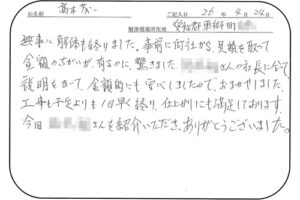 お名前 高木茂一 ご記入日 26年8月24日
解体現場所在地 愛知郡東郷町
無事に解体も終りました。事前に何社から、見積を取って
金額のちがいが、有るのに、驚きました さんの社長に会って
説明をきって、金額的にも安心しましたので、おまかせしました。
工事も予定よりも1日早く終り、仕上がりにも満足しております。
今回 さんを紹介いただき、ありがとうございました。